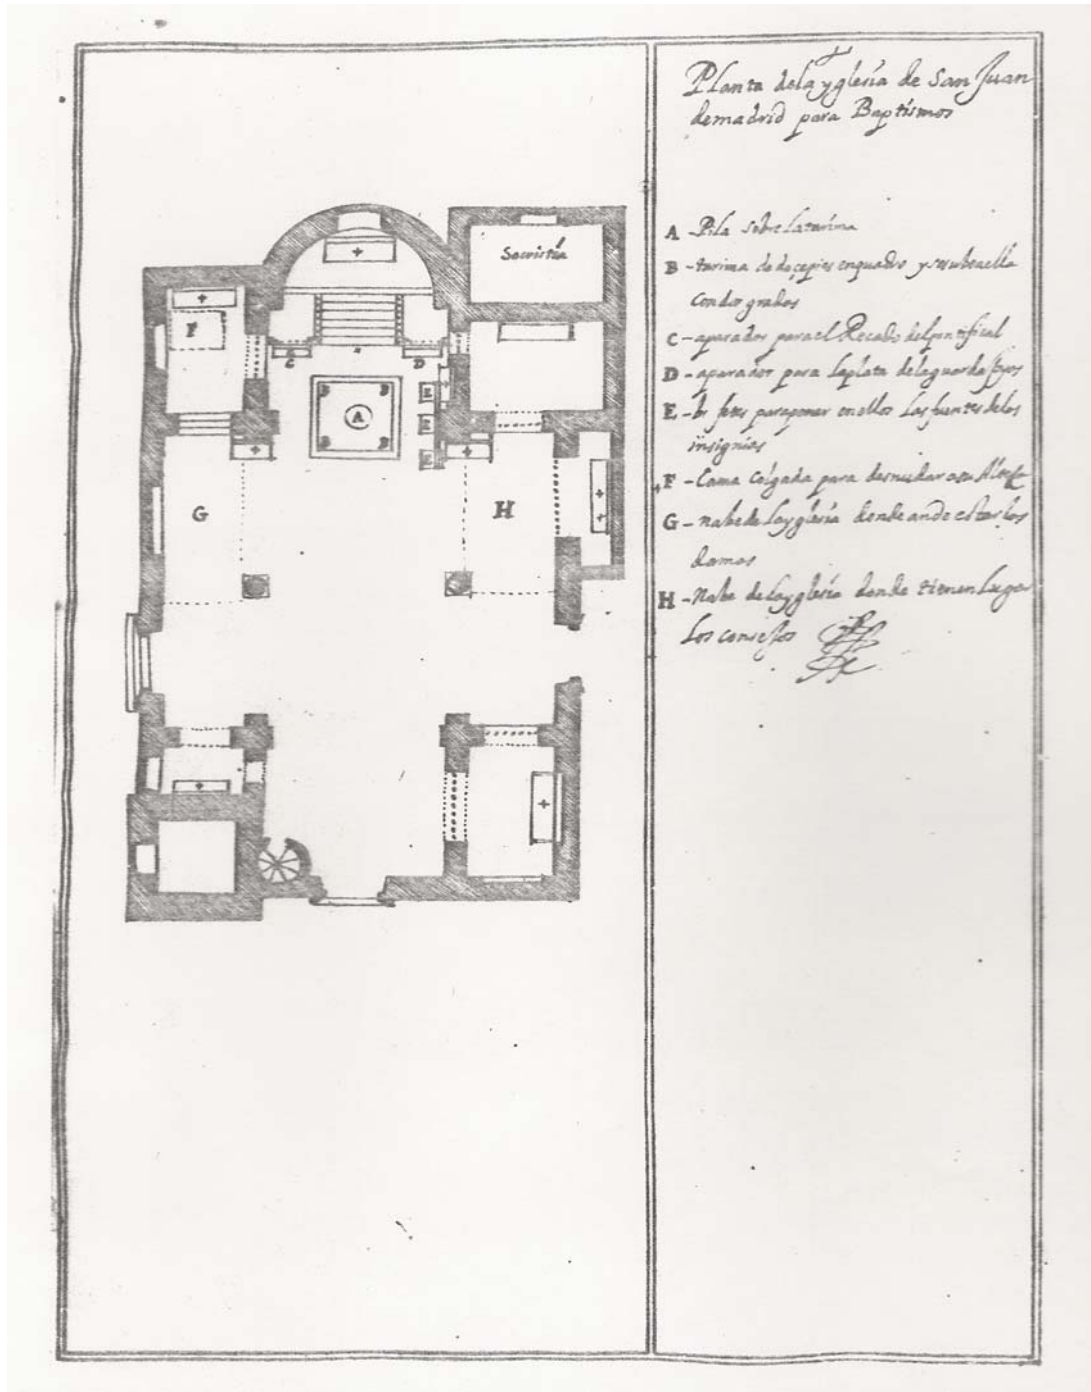 Planta dela yglesia de San Juan
demadrid para Baptismos
A - Pila sobre latarima
B - tarima de doçepies enquadro y sesubeaella
con dos grados
C - aparador parael Recado del pontifical
D - aparador para laplata delaguarda Joyas
E - bufetes paraponer enellos las fuentes delas
insignias
F - Cama Colgada para desnudar asu Alteza
G - nabe de layglesia donde ande estar las
damas
H - Nabe de layglesia donde tienen lugar
los consejos
Sacristia
F
C
D
B
B
E
A
E
B
B
E
G
H